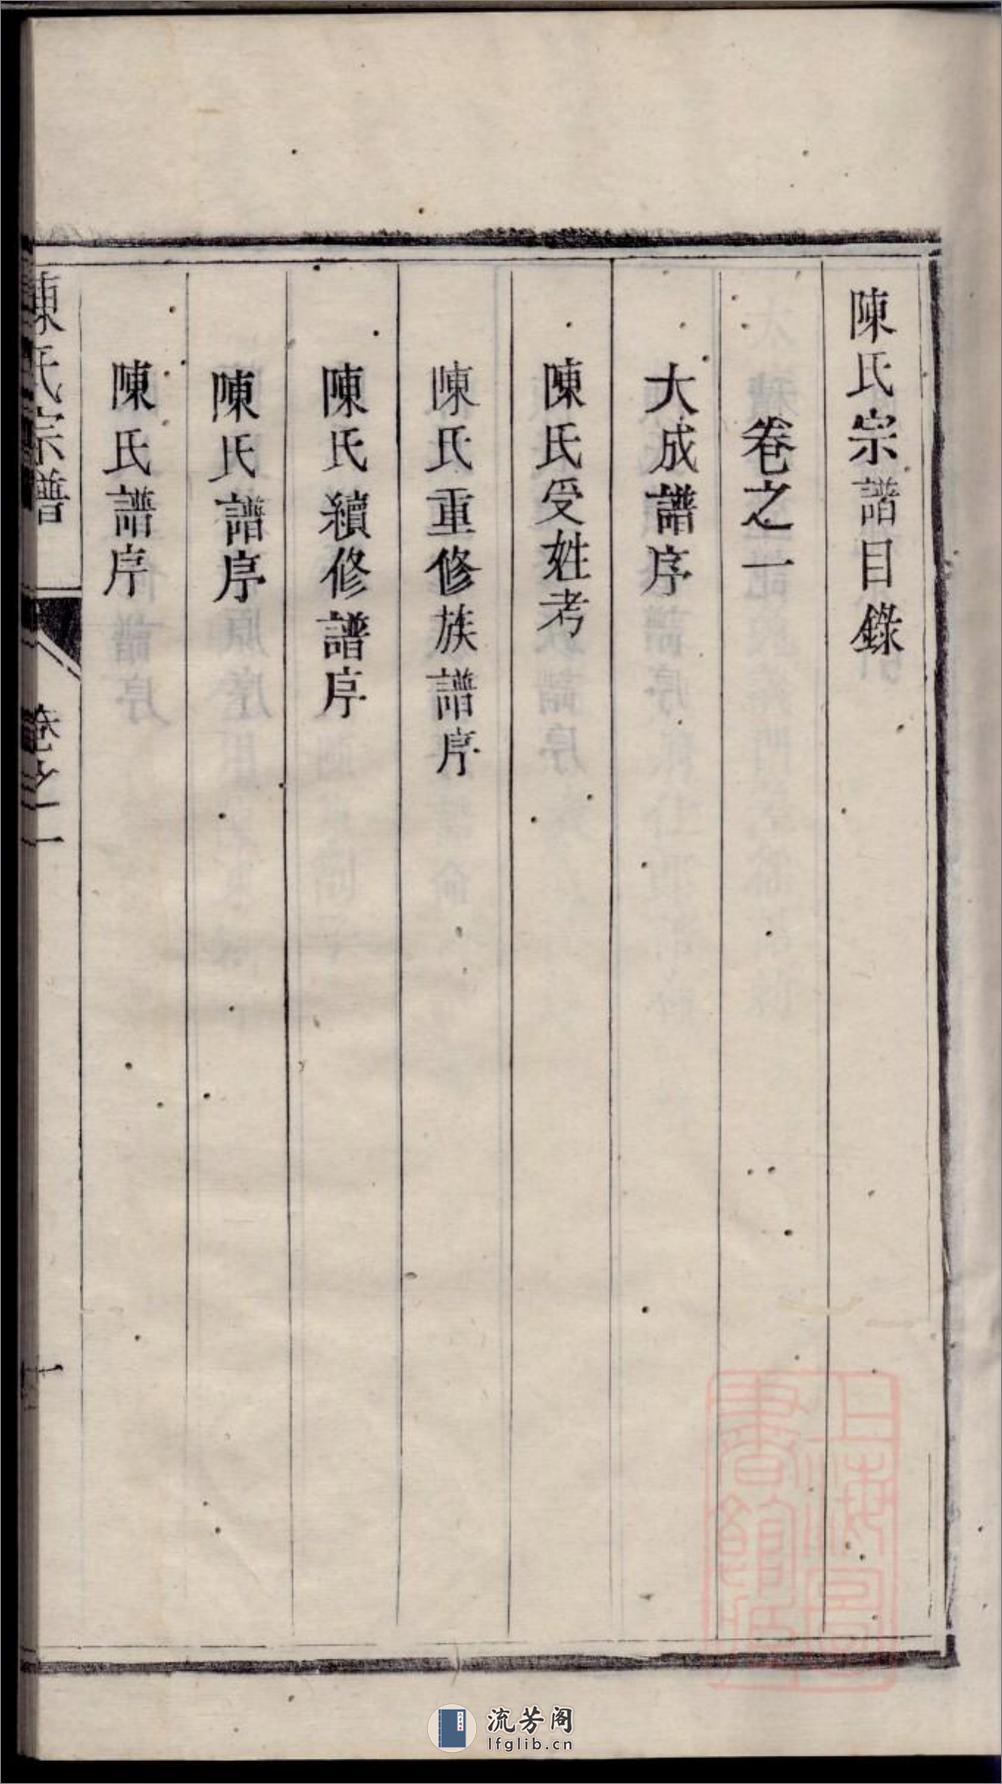 陳氏宗譜目錄
卷之一
大成譜序
陳氏受姓考
陳氏重修族譜序
陳氏續修譜序
陳氏譜序
陳氏譜序
陳氏宗譜
卷之一
一
上海圖書館藏
流芳阁
lfglib.cn